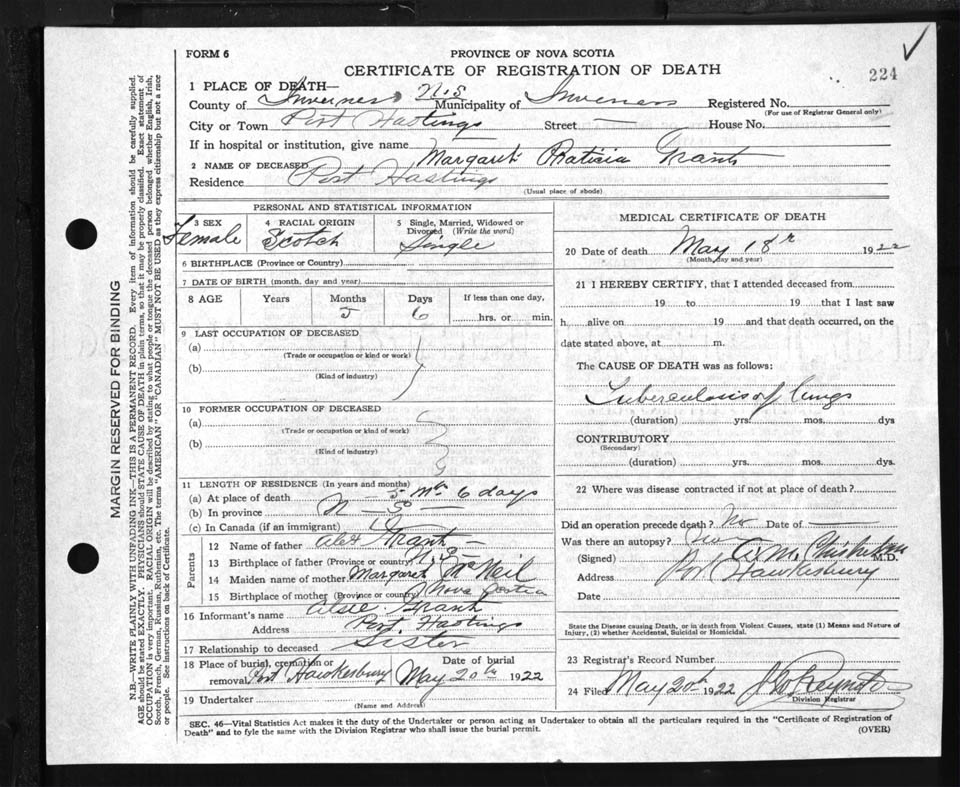 224
FORM 6
PROVINCE OF NOVA SCOTIA
CERTIFICATE OF REGISTRATION OF DEATH
1 PLACE OF DEATH—
County of Inverness N.S Municipality of Inverness Registered No.
(For use of Registrar General only)
City or Town Port Hastings Street — House No.
If in hospital or institution, give name
2 NAME OF DECEASED Margaret Grant
Residence Port Hastings
(Usual place of abode)
PERSONAL AND STATISTICAL INFORMATION
3 SEX Female
4 RACIAL ORIGIN Scotch
5 Single, Married, Widowed or Divorced (Write the word) Single
6 BIRTHPLACE (Province or Country)
7 DATE OF BIRTH (month, day and year)
8 AGE Years Months 5 Days 6 If less than one day, hrs. or min.
9 LAST OCCUPATION OF DECEASED
(a)
(Trade or occupation or kind or work)
(b)
(Kind of industry)
10 FORMER OCCUPATION OF DECEASED
(a)
(Trade or occupation or kind of work)
(b)
(Kind of industry)
11 LENGTH OF RESIDENCE (In years and months)
(a) At place of death 5 Mts 6 days
(b) In province
(c) In Canada (if an immigrant)
Parents
12 Name of father Alex Grant
13 Birthplace of father (Province or country) N.S—
14 Maiden name of mother Margaret McNeil
15 Birthplace of mother (Province or country) Nova Scotia
16 Informant's name Grant
Address Port Hastings
17 Relationship to deceased Sister
18 Place of burial, cremation or removal Port Hawkesbury Date of burial May 20th 1922
19 Undertaker
(Name and Address)
MEDICAL CERTIFICATE OF DEATH
20 Date of death May 18 1922
(Month, day and year)
21 I HEREBY CERTIFY, that I attended deceased from
19 to 19 that I last saw
h alive on 19 and that death occurred, on the
date stated above, at m.
The CAUSE OF DEATH was as follows:
Tuberculosis of lungs
(duration) yrs. mos. dys
CONTRIBUTORY
(Secondary)
(duration) yrs. mos. dys.
22 Where was disease contracted if not at place of death?
Did an operation precede death? No Date of —
Was there an autopsy?
(Signed) Chisholm M.D.
Address Port Hawkesbury
Date
State the Disease causing Death, or in death from Violent Causes, state (1) Means and Nature of
Injury, (2) whether Accidental, Suicidal or Homicidal.
23 Registrar's Record Number
24 Filed May 20th 1922
Division Registrar
SEC. 46—Vital Statistics Act makes it the duty of the Undertaker or person acting as Undertaker to obtain all the particulars required in the "Certificate of Registration of
Death" and to fyle the same with the Division Registrar who shall issue the burial permit.
(OVER)
MARGIN RESERVED FOR BINDING
N.B.—WRITE PLAINLY WITH UNFADING INK—THIS IS A PERMANENT RECORD. Every item of information should be carefully supplied.
AGE should be stated EXACTLY. PHYSICIANS should STATE CAUSE OF DEATH in plain terms, so that it may be properly classified. Exact statement of
OCCUPATION is very important. RACIAL ORIGIN will be described by stating to what people or tongue the deceased person belonged whether English, Irish,
Scotch, French, German, Russian, Ruthenian, etc. The terms "AMERICAN" OR "CANADIAN" MUST NOT BE USED as they express citizenship but not a race
or people. See instructions on back of Certificate.